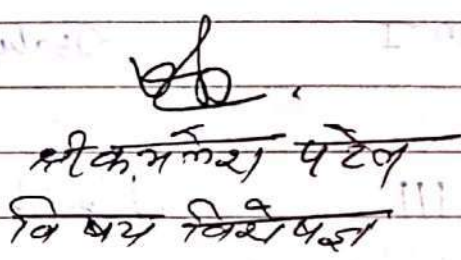 श्री कमलेश पटेल
विषय विशेषज्ञ